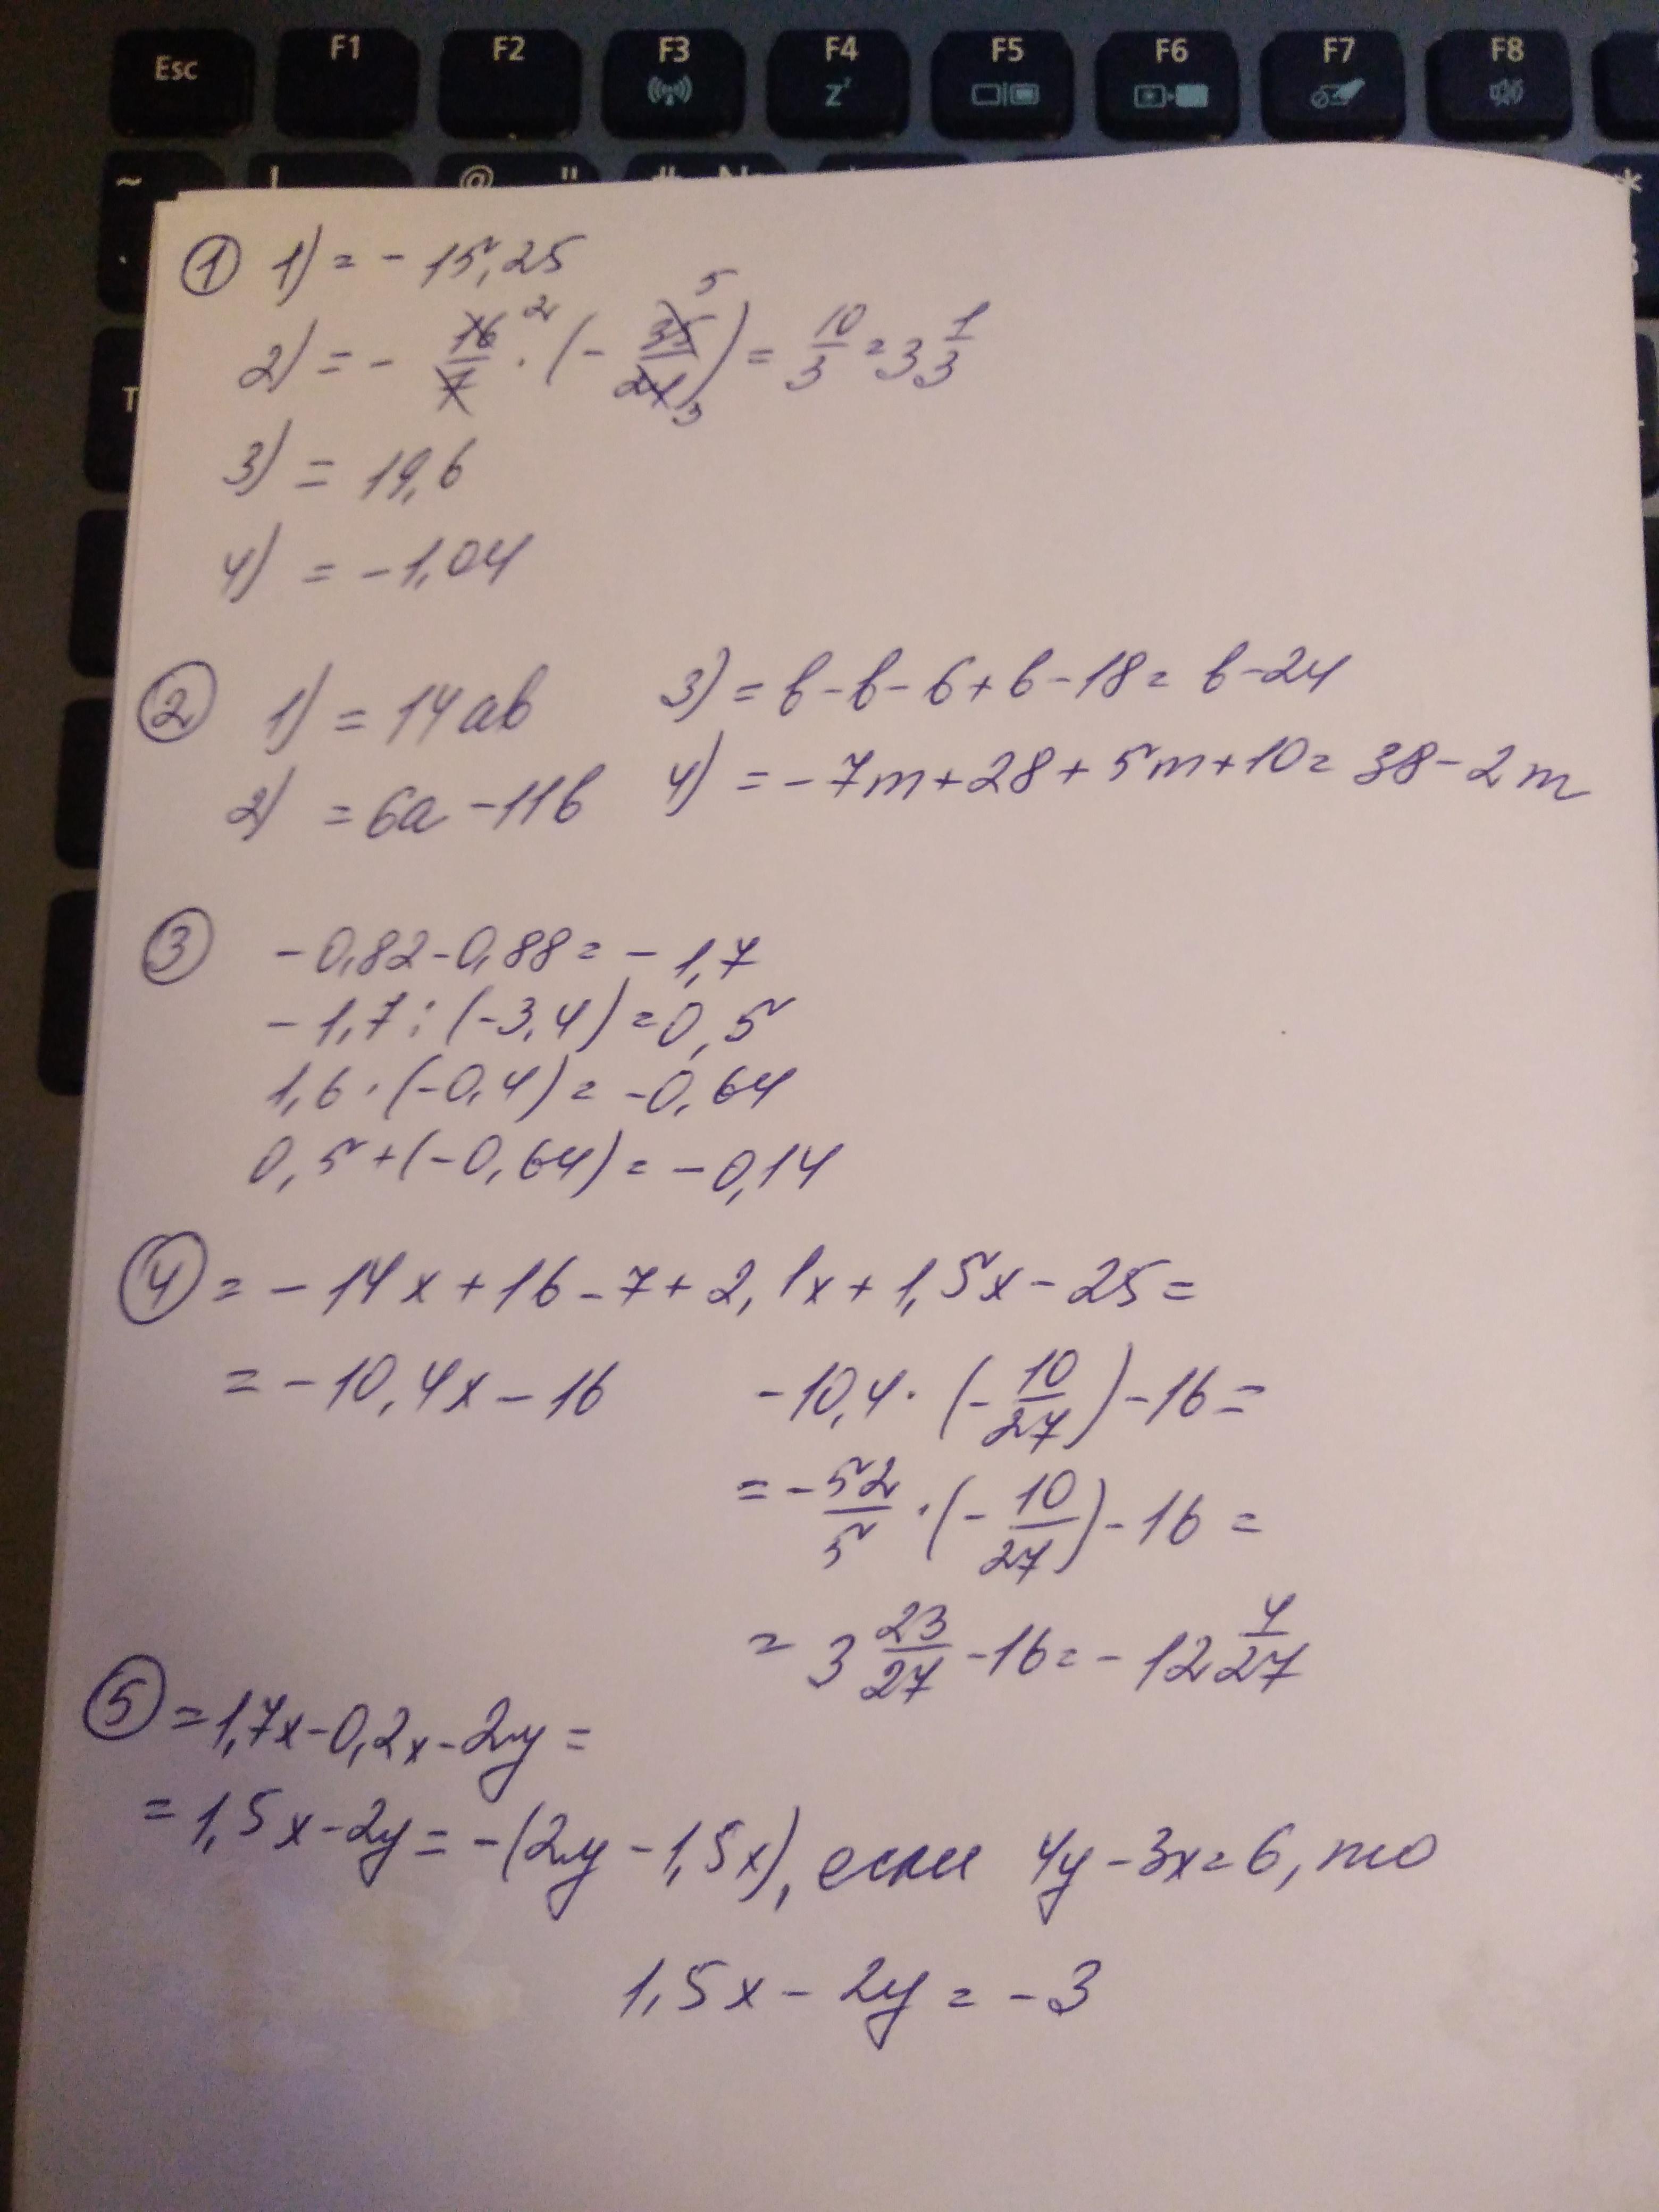 Esc F1 F2 F3 F4 F5 F6 F7 F8
z
~ ! @ " # № *
T
① 1) = - 15,25
2) = - 16/7 2 · (- 35/21 5 3) = 10/3 = 3 1/3
3) = 19,6
4) = -1,04
② 1) = 14ab 3) = b - b - 6 + b - 18 = b - 24
2) = 6a - 11b 4) = - 7m + 28 + 5m + 10 = 38 - 2m
③ - 0,82 - 0,88 = - 1,7
- 1,7 : (-3,4) = 0,5
1,6 · (-0,4) = -0,64
0,5 + (-0,64) = - 0,14
④ = - 14x + 16 - 7 + 2,1x + 1,5x - 25 =
= - 10,4x - 16 - 10,4 · (- 10/27) - 16 =
= - 52/5 · (- 10/27) - 16 =
= 3 23/27 - 16 = - 12 4/27
⑤ = 1,7x - 0,2x - 2y =
= 1,5x - 2y = - (2y - 1,5x), если 4y - 3x = 6, то
1,5x - 2y = - 3